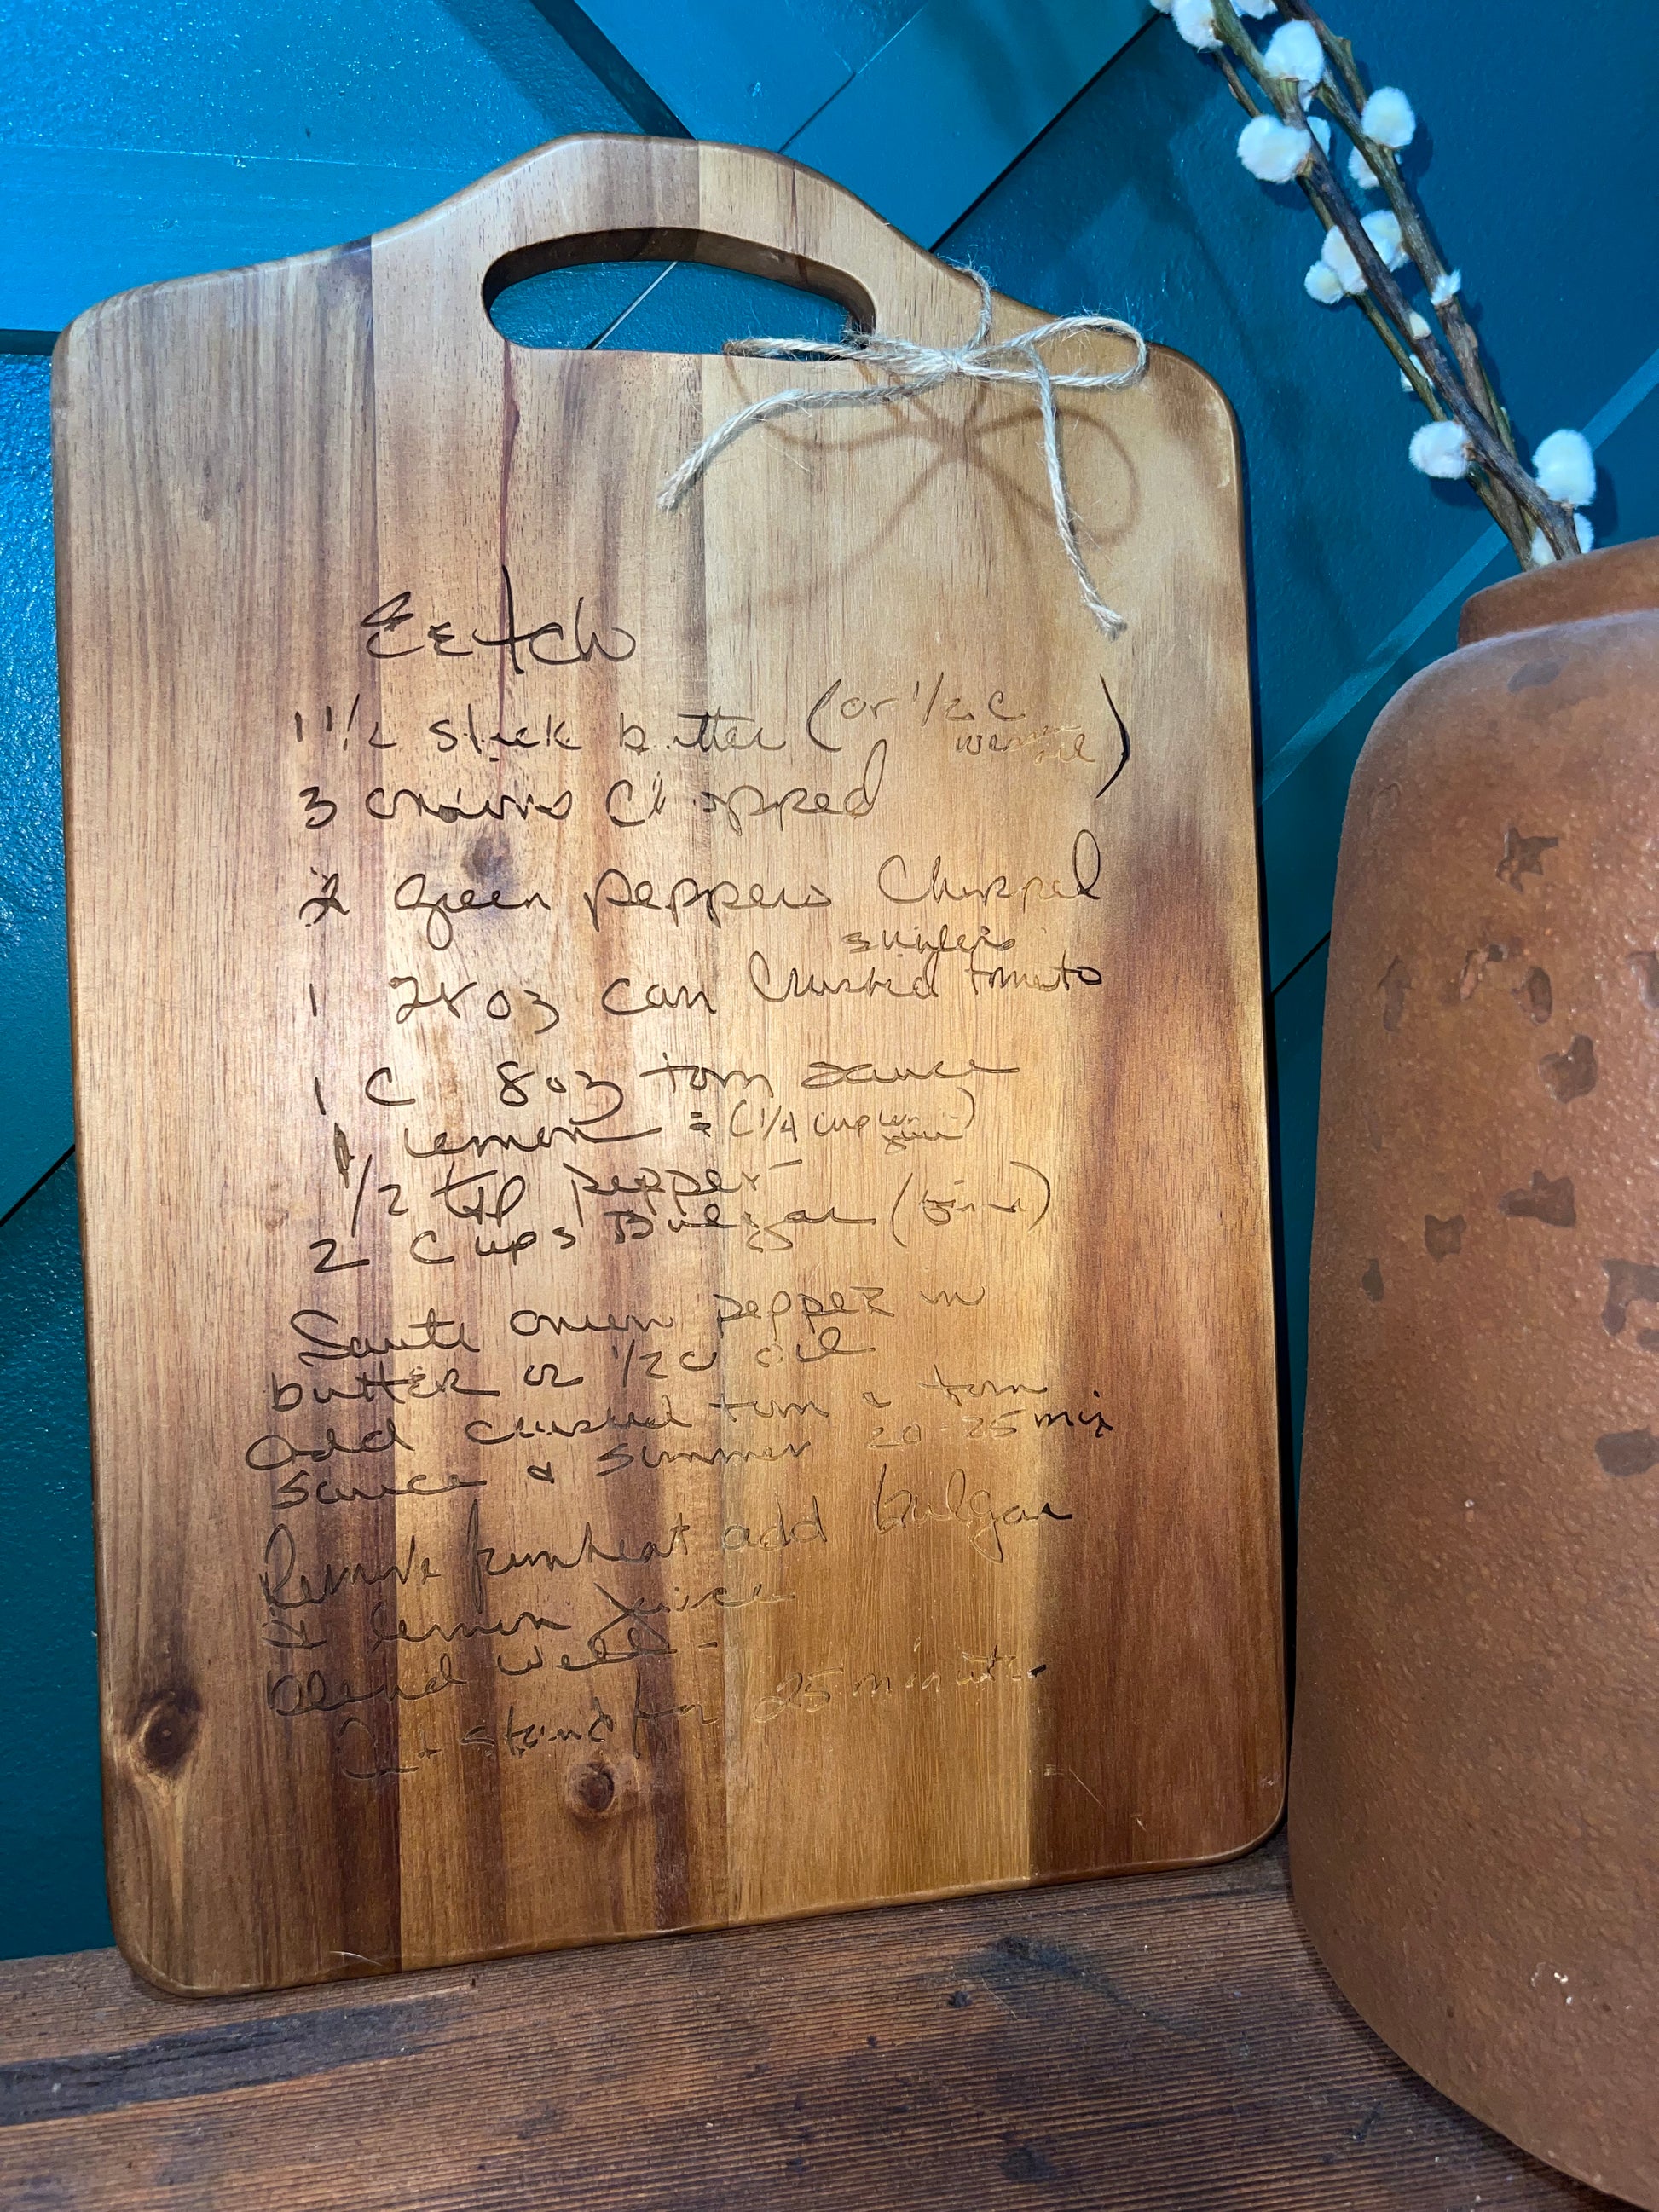 Eetch
1 1/2 stick butter (or 1/2 C
oil)
3 onions Chopped
2 green peppers Chopped
1 28 oz can Crushed tomato
1 C 8 oz tom sauce
1 lemon = (1/4 cup lem juice)
1/2 tsp pepper
2 Cups Bulgar (fine)
Saute onion pepper in
butter or 1/2 C oil
add crushed tom & tom
sauce & simmer 20-25 min
Remove from heat add bulgar
& lemon juice
Blend well -
stand for 25 minutes